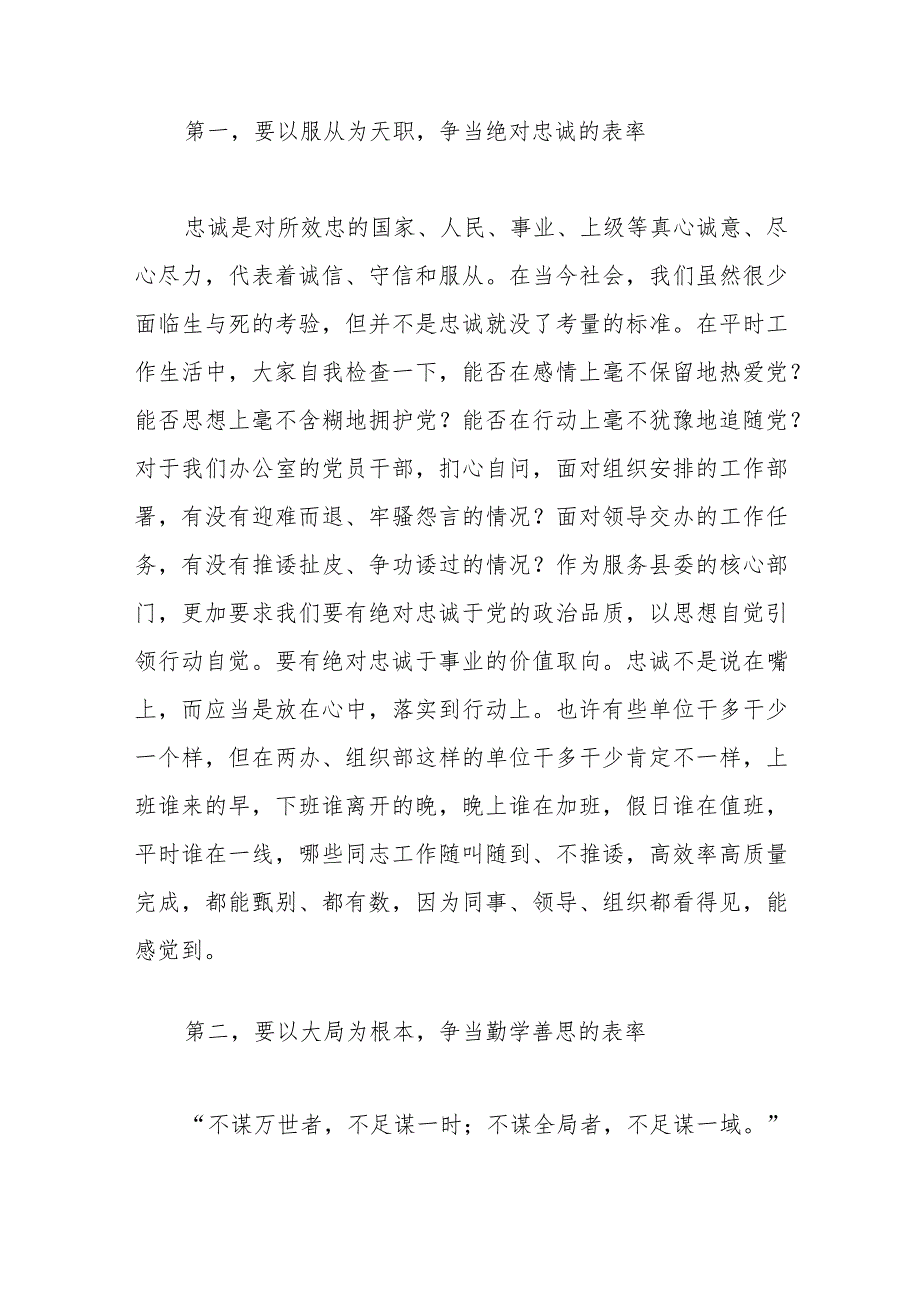 第一，要以服从为天职，争当绝对忠诚的表率
忠诚是对所效忠的国家、人民、事业、上级等真心诚意、尽
心尽力，代表着诚信、守信和服从。在当今社会，我们虽然很少
面临生与死的考验，但并不是忠诚就没了考量的标准。在平时工
作生活中，大家自我检查一下，能否在感情上毫不保留地热爱党？
能否思想上毫不含糊地拥护党？能否在行动上毫不犹豫地追随党？
对于我们办公室的党员干部，扪心自问，面对组织安排的工作部
署，有没有迎难而退、牢骚怨言的情况？面对领导交办的工作任
务，有没有推诿扯皮、争功诿过的情况？作为服务县委的核心部
门，更加要求我们要有绝对忠诚于党的政治品质，以思想自觉引
领行动自觉。要有绝对忠诚于事业的价值取向。忠诚不是说在嘴
上，而应当是放在心中，落实到行动上。也许有些单位干多干少
一个样，但在两办、组织部这样的单位干多干少肯定不一样，上
班谁来的早，下班谁离开的晚，晚上谁在加班，假日谁在值班，
平时谁在一线，哪些同志工作随叫随到、不推诿，高效率高质量
完成，都能甄别、都有数，因为同事、领导、组织都看得见，能
感觉到。
第二，要以大局为根本，争当勤学善思的表率
“不谋万世者，不足谋一时；不谋全局者，不足谋一域。”